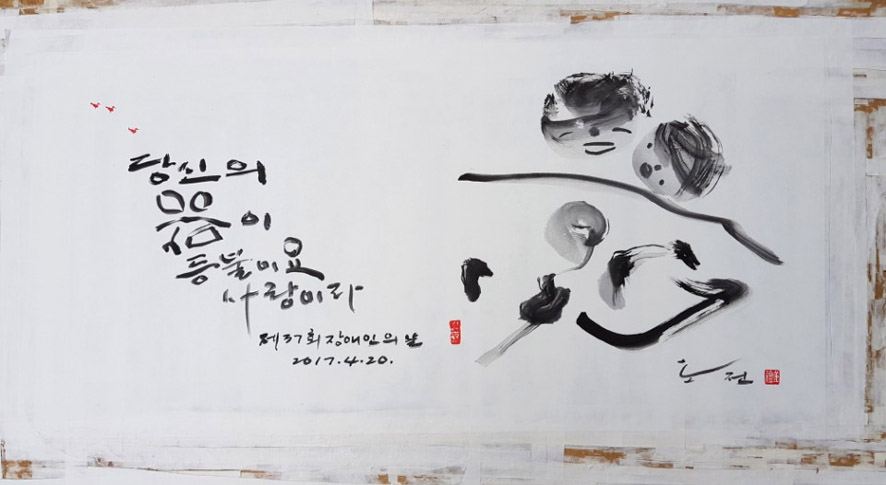 당신의
이
등불이요
사랑이라
제37회 장애인의 날
2017.4.20.